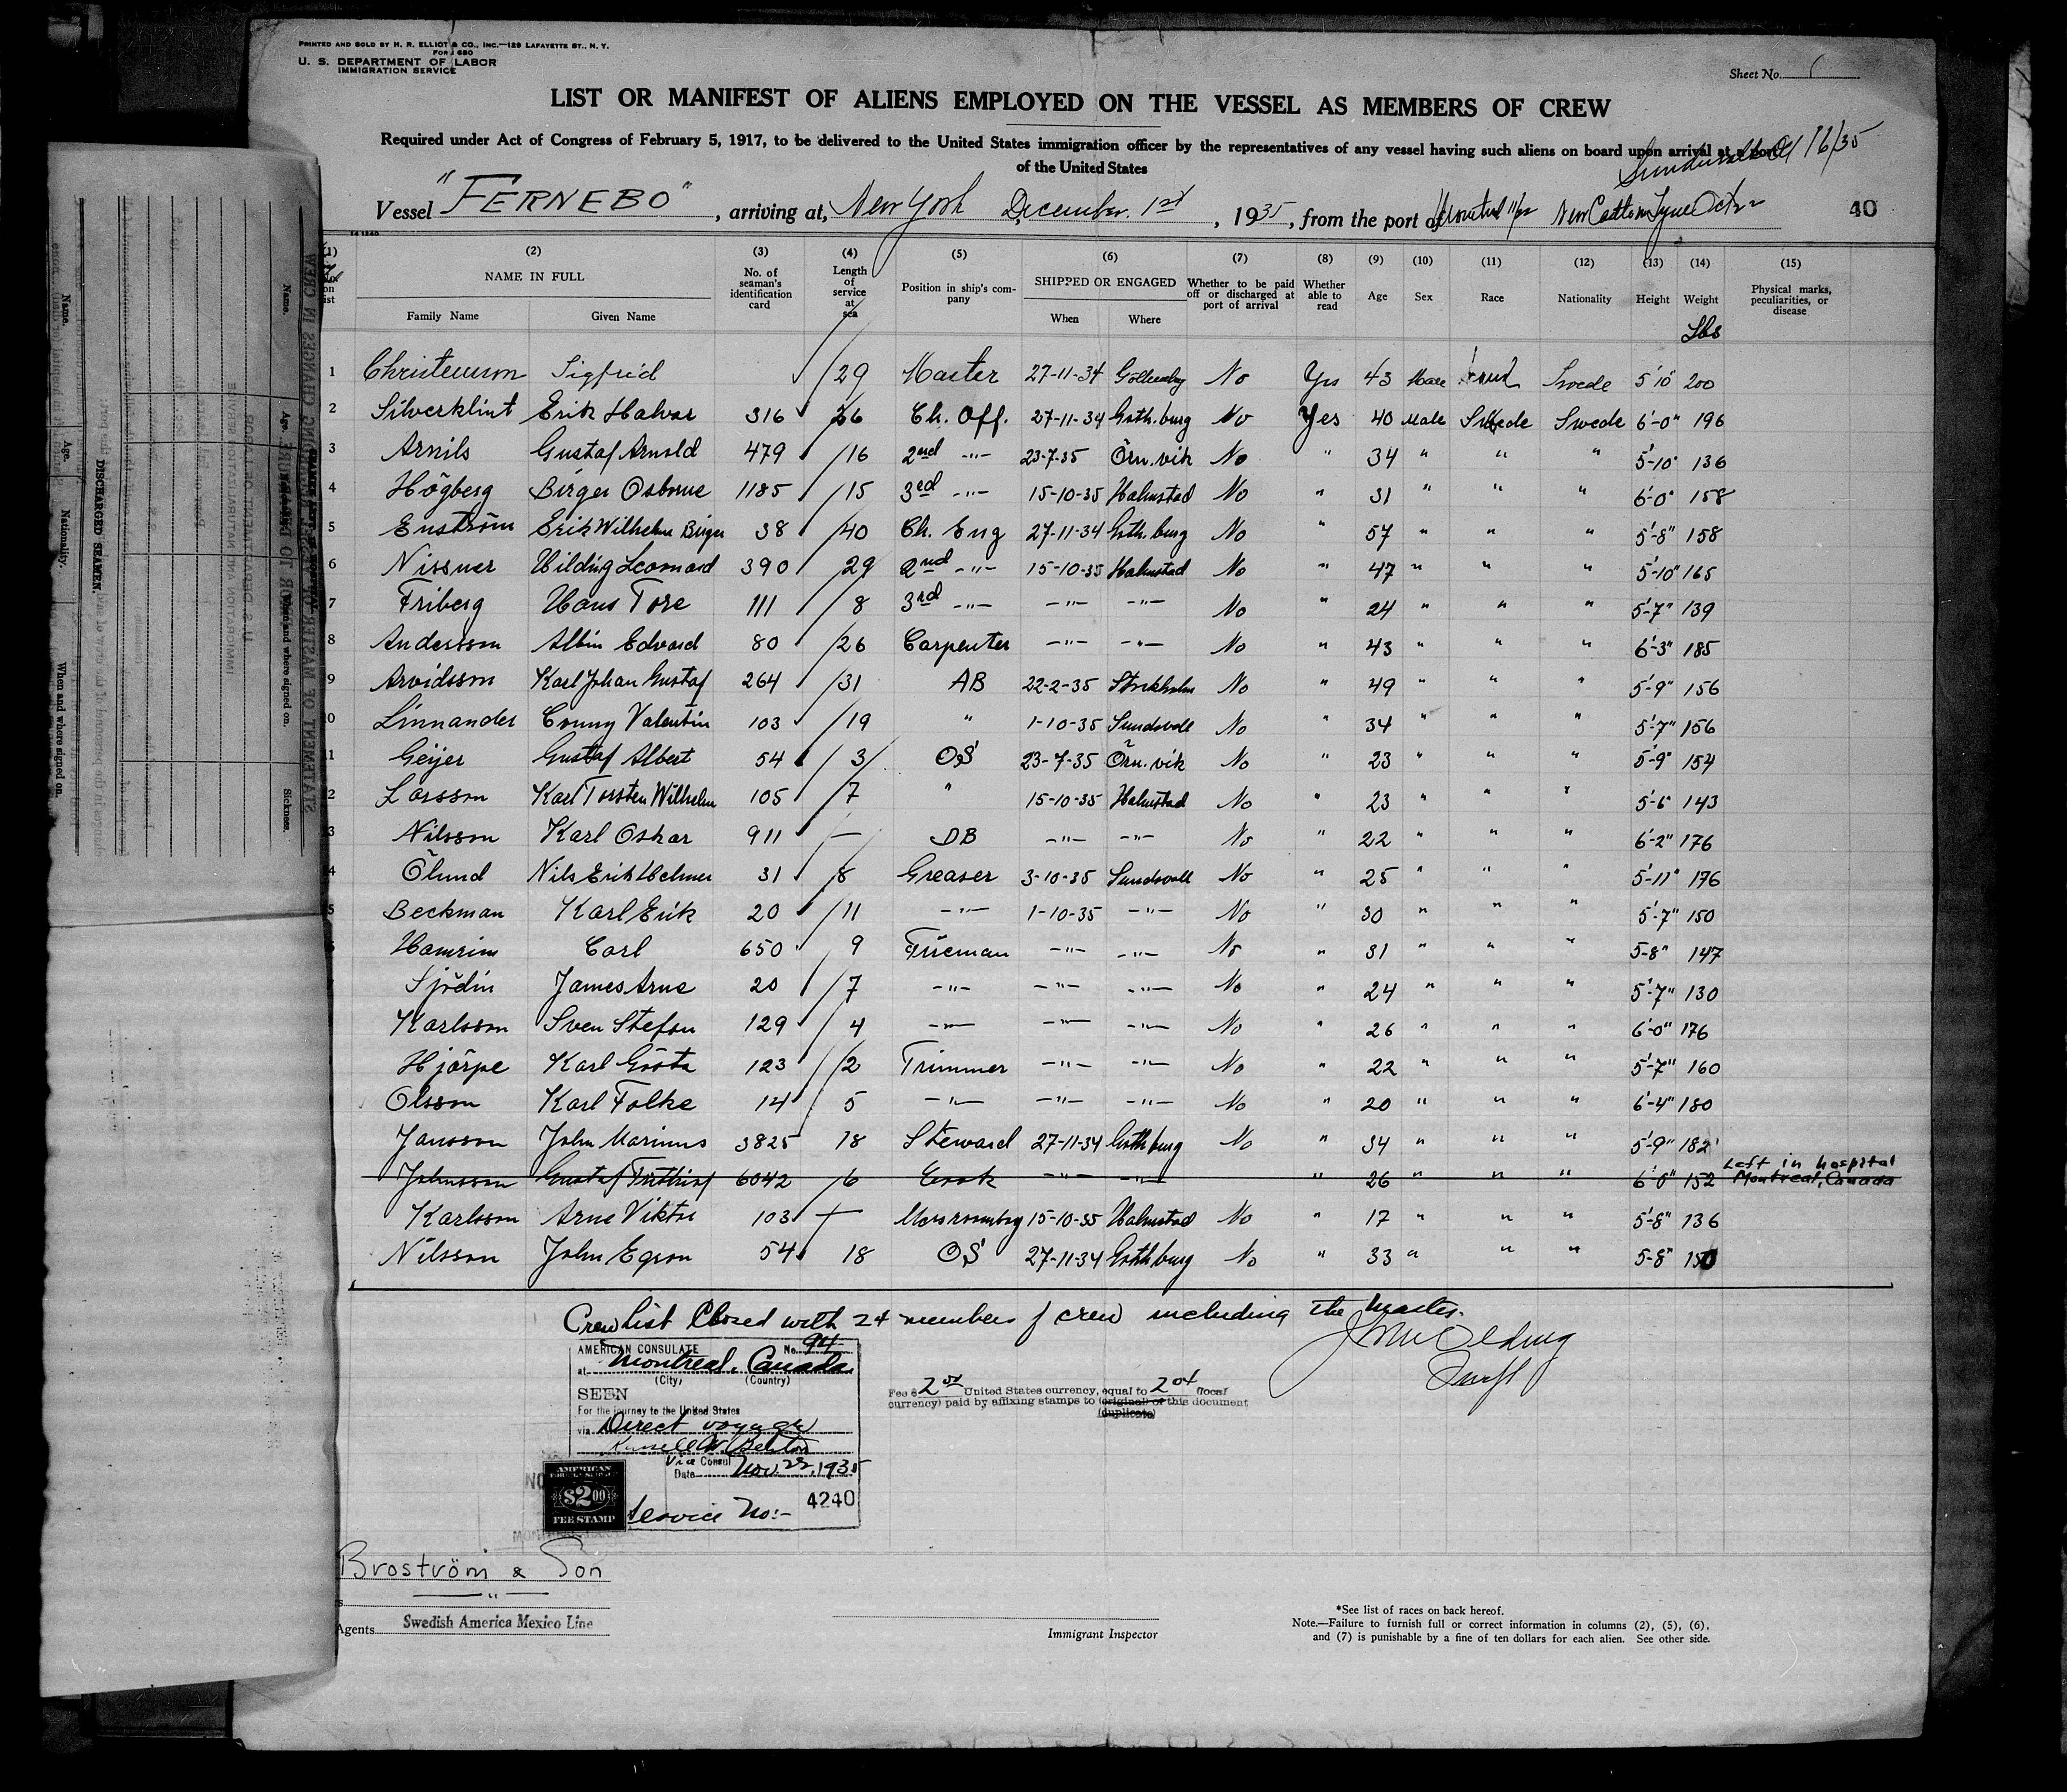 PRINTED AND SOLD BY H. R. ELLIOT & CO., INC.—129 LAFAYETTE ST., N. Y.
FORM 680
U. S. DEPARTMENT OF LABOR
IMMIGRATION SERVICE
Sheet No. 1
LIST OR MANIFEST OF ALIENS EMPLOYED ON THE VESSEL AS MEMBERS OF CREW
Required under Act of Congress of February 5, 1917, to be delivered to the United States immigration officer by the representatives of any vessel having such aliens on board upon arrival at a port
of the United States
16/35
Vessel "FERNEBO", arriving at, New York December 1st, 1935, from the port of
40
(1) (2) (3) (4) (5) (6) (7) (8) (9) (10) (11) (12) (13) (14) (15)
NAME IN FULL No. of seaman's identification card Length of service at sea Position in ship's company SHIPPED OR ENGAGED Whether to be paid off or discharged at port of arrival Whether able to read Age Sex Race Nationality Height Weight Physical marks, peculiarities, or disease
Family Name Given Name When Where Lbs
1 Christensson Sigfrid 29 Master 27-11-34 Gothenburg No Yes 43 Male Swede 5'10" 200
2 Silverklint Erik Halvar 316 26 Ch. Off. 27-11-34 Goth.burg No Yes 40 Male Swede Swede 6'-0" 196
3 Arnils Gustaf Arnold 479 16 2nd -"- 23-7-35 Örn.vik No " 34 " " " 5'-10" 136
4 Högberg Birger Osborne 1185 15 3rd -"- 15-10-35 Halmstad No " 31 " " " 6'-0" 158
5 Enström Erik Wilhelm Birger 38 40 Ch. Eng 27-11-34 Goth.burg No " 57 " " " 5'-8" 158
6 Nissner Hilding Leonard 390 29 2nd -"- 15-10-35 Halmstad No " 47 " " " 5'-10" 165
7 Friberg Hans Tore 111 8 3rd -"- -"- -"- No " 24 " " " 5'-7" 139
8 Andersson Albin Edvard 80 26 Carpenter -"- -"- No " 43 " " " 6'-3" 185
9 Arvidsson Karl Johan Gustaf 264 31 AB 22-2-35 Stockholm No " 49 " " " 5'-9" 156
10 Linnander Conny Valentin 103 19 " 1-10-35 Sundsvall No " 34 " " " 5'-7" 156
11 Geijer Gustaf Albert 54 3 OS 23-7-35 Örn.vik No " 23 " " " 5'-9" 154
12 Larsson Karl Torsten Wilhelm 105 7 " 15-10-35 Halmstad No " 23 " " " 5'-6" 143
13 Nilsson Karl Oskar 911 — DB -"- -"- No " 22 " " " 6'-2" 176
14 Ölund Nils Erik Helmer 31 8 Greaser 3-10-35 Sundsvall No " 25 " " " 5'-11" 176
15 Beckman Karl Erik 20 11 -"- 1-10-35 -"- No " 30 " " " 5'-7" 150
Hamrin Carl 650 9 Fireman -"- -"- No " 31 " " " 5-8" 147
Sjödin James Arne 20 7 -"- -"- -"- No " 24 " " " 5'-7" 130
Karlsson Sven Stefan 129 4 -"- -"- -"- No " 26 " " " 6'-0" 176
Hjörpe Karl Gösta 123 2 Trimmer -"- -"- No " 22 " " " 5'-7" 160
Olsson Karl Folke 14 5 -"- -"- -"- No " 20 " " " 6'-4" 180
Jansson John Marinus 3825 18 Steward 27-11-34 Gothburg No " 34 " " " 5'-9" 182
Johnsson Gustaf Frithiof 6042 6 Cook -"- -"- " 26 " " " 6'-0" 152 Left in hospital Montreal, Canada
Karlsson Arne Viktor 103 — Messroomboy 15-10-35 Halmstad No " 17 " " " 5'-8" 136
Nilsson John Egron 54 18 OS 27-11-34 Gothburg No " 33 " " " 5-8" 150
Crew list Closed with 24 members of crew including the Master.
AMERICAN CONSULATE No. 94
at Montreal, Canada
(City) (Country)
SEEN
For the journey to the United States
via Direct voyage
Vice Consul
Date Nov. 22, 1935
Service No:- 4240
AMERICAN
$2.00
FEE STAMP
Fee $ 2.00 United States currency, equal to 2.04 (local
currency) paid by affixing stamps to (original) of this document
(duplicate)
Broström & Son
—"—
Agents Swedish America Mexico Line
Immigrant Inspector
*See list of races on back hereof.
Note.—Failure to furnish full or correct information in columns (2), (5), (6),
and (7) is punishable by a fine of ten dollars for each alien. See other side.
DISCHARGED SEAMEN.
Name. Age. Nationality. When and where signed on.
Name. Age. When and where signed on. Sickness.
STATEMENT OF MASTER OF VESSEL REGARDING CHANGES IN CREW
U. S. DEPARTMENT OF LABOR
IMMIGRATION AND NATURALIZATION SERVICE